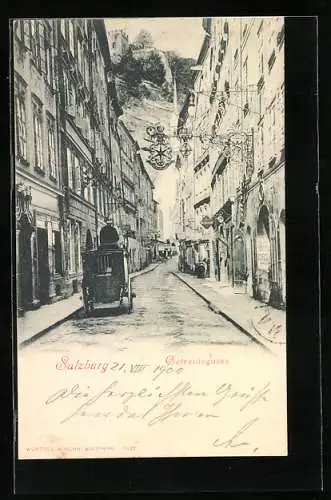 Salzburg 21. VIII 1900 Getreidegasse
Die herzlichsten Grüße
sendet Ihnen
WÜRTHLE & SOHN, SALZBURG.